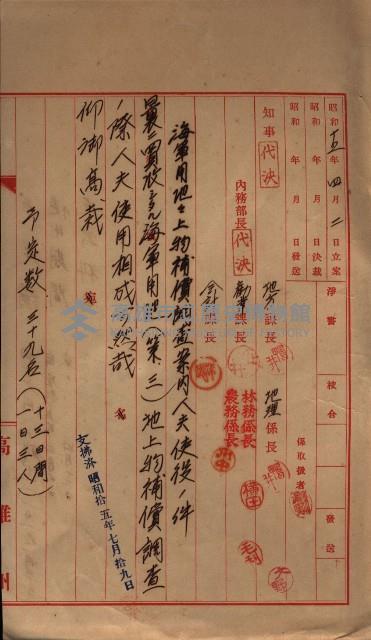 昭和十五年四月二日立案
昭和 年 月 日決裁
昭和 年 月 日發送
淨書
校合
發送
知事 代決
內務部長 代決
地方課長
勸業課長
會計課長
地理係長
林務係長
農務係長
係取扱者
海軍用地々上物補償調查案內人夫使役ノ件
曩ニ買收シタル海軍用地(第三)地上物補償調查
ノ際人夫使用相成可然哉
仰御高裁
予定數 三十九名(十三日間
一日三人)
支拂濟 昭和拾五年七月十九日
高雄州
高雄市立歷史博物館